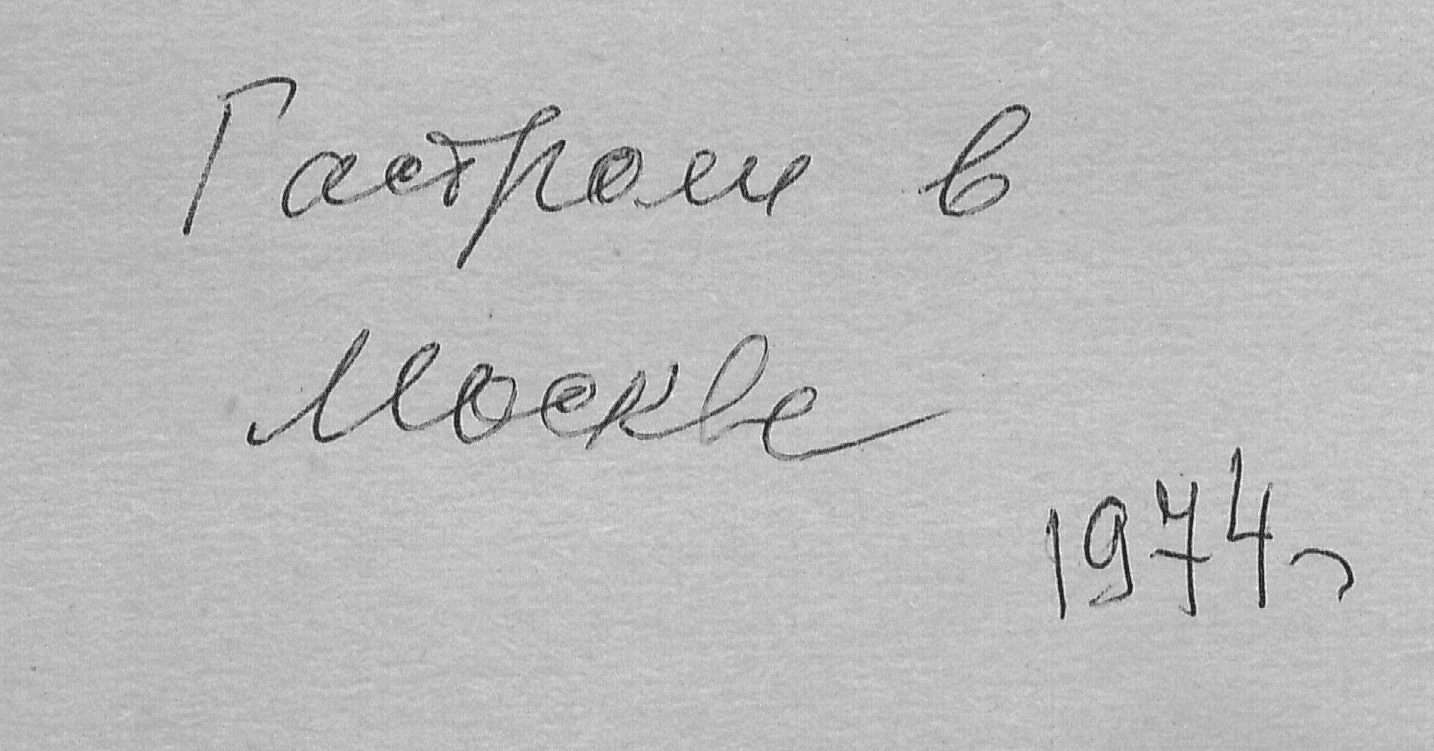 Гастроли в
Москве
1974г